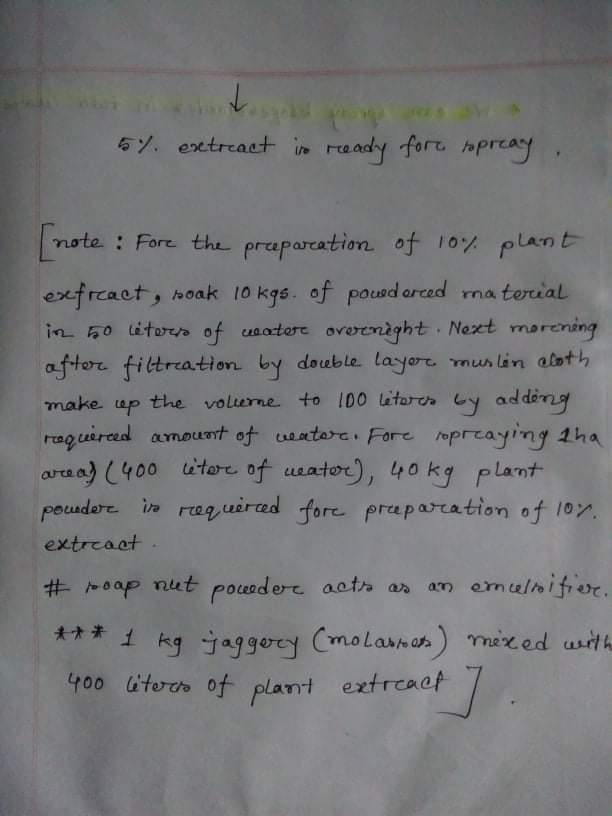 ↓
5%. extract is ready for spray.
[note : For the preparation of 10% plant
exfract, soak 10 kgs. of powdered material
in 50 liters of water overnight. Next morning
after filtration by double layer muslin cloth
make up the volume to 100 liters by adding
required amount of water. For spraying 1ha
area) (400 liter of water), 40 kg plant
powder is required for preparation of 10%.
extract.
# soap nut powder acts as an emulsifier.
*** 1 kg jaggery (molasses) mixed with
400 liters of plant extract].